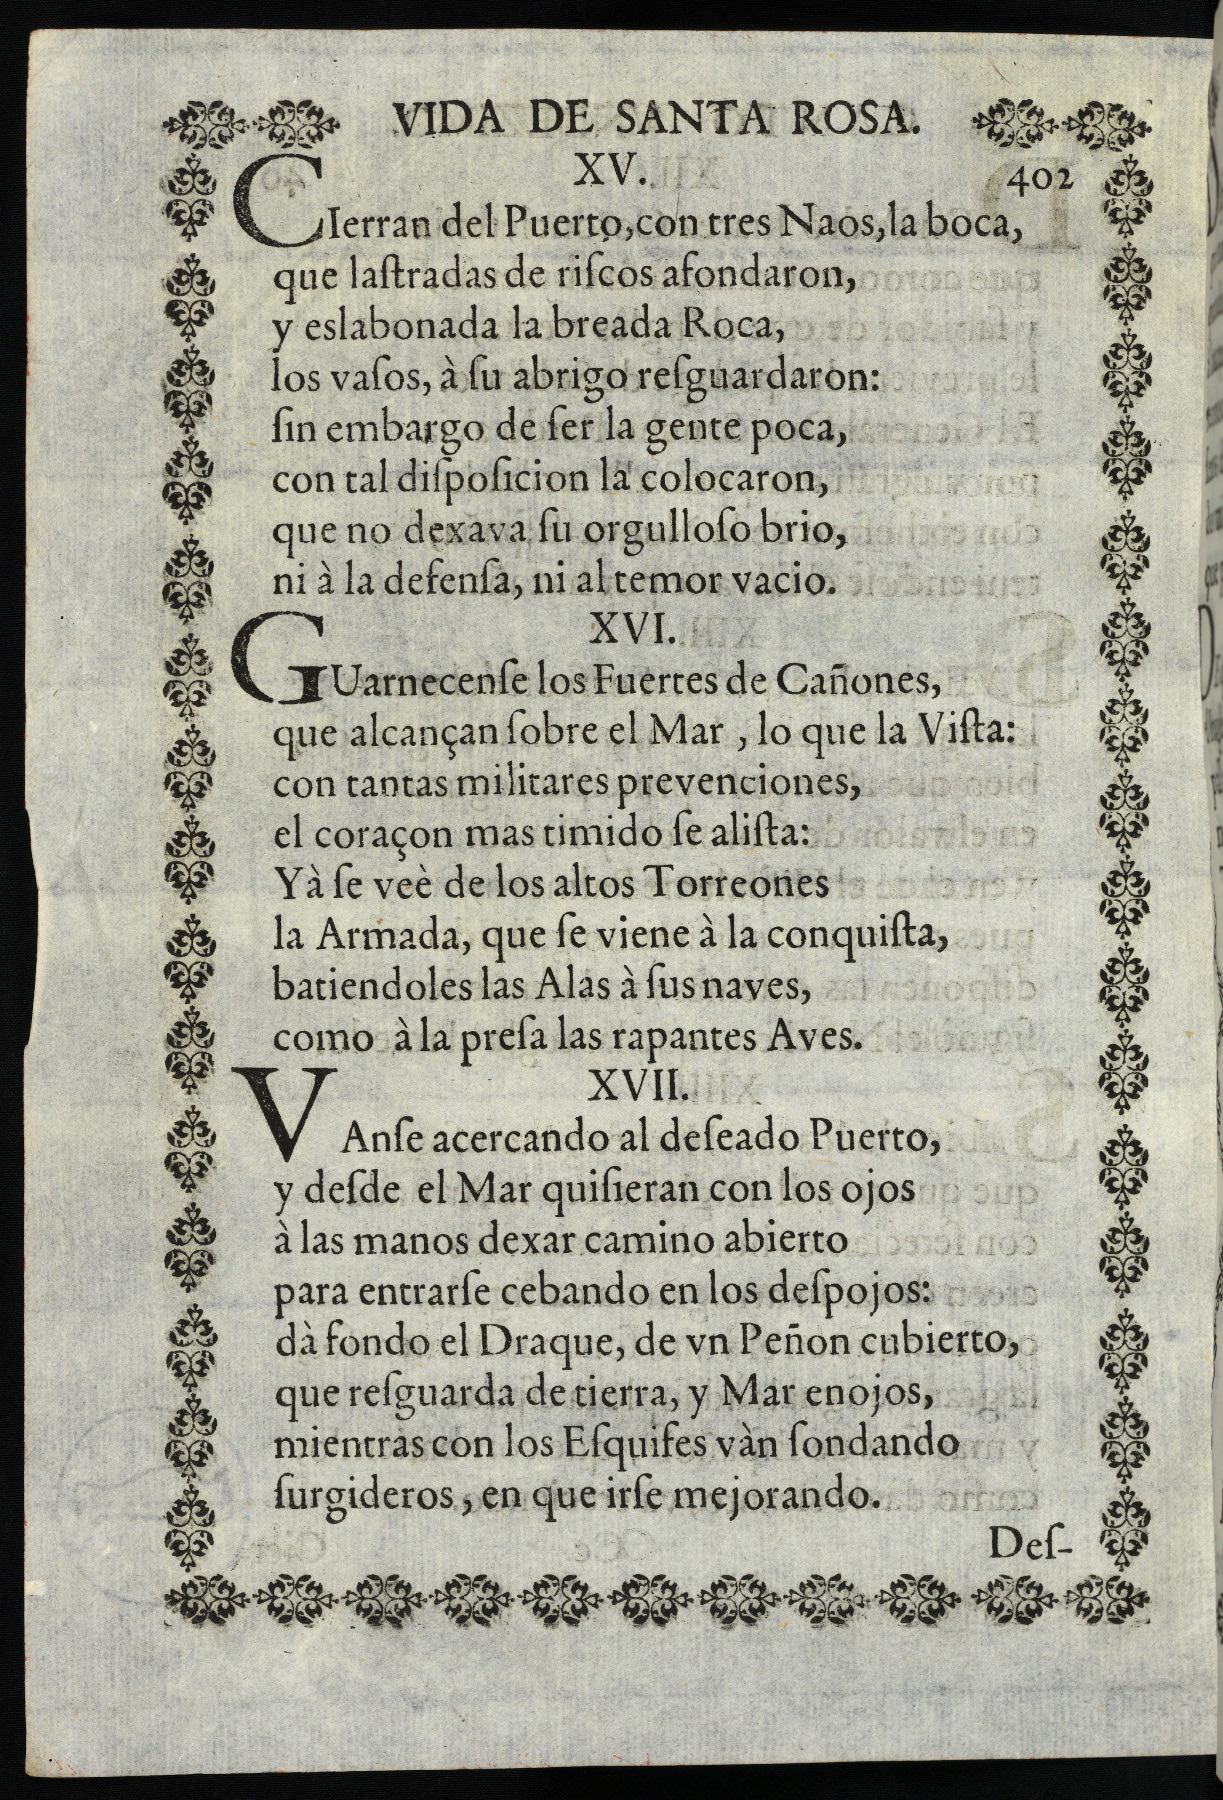 VIDA DE SANTA ROSA.
XV. 402
CIerran del Puerto,con tres Naos,la boca,
que laſtradas de riſcos afondaron,
y eslabonada la breada Roca,
los vaſos, à ſu abrigo reſguardaron:
ſin embargo de ſer la gente poca,
con tal diſpoſicion la colocaron,
que no dexava ſu orgulloſo brio,
ni à la defenſa, ni al temor vacio.
XVI.
GUarnecenſe los Fuertes de Cañones,
que alcançan ſobre el Mar , lo que la Viſta:
con tantas militares prevenciones,
el coraçon mas timido ſe aliſta:
Yà ſe veè de los altos Torreones
la Armada, que ſe viene à la conquiſta,
batiendoles las Alas à ſus naves,
como à la preſa las rapantes Aves.
XVII.
VAnſe acercando al deſeado Puerto,
y deſde el Mar quiſieran con los ojos
à las manos dexar camino abierto
para entrarſe cebando en los deſpojos:
dà fondo el Draque, de vn Peñon cubierto,
que reſguarda de tierra, y Mar enojos,
mientras con los Eſquifes vàn ſondando
ſurgideros , en que irſe mejorando.
Deſ-